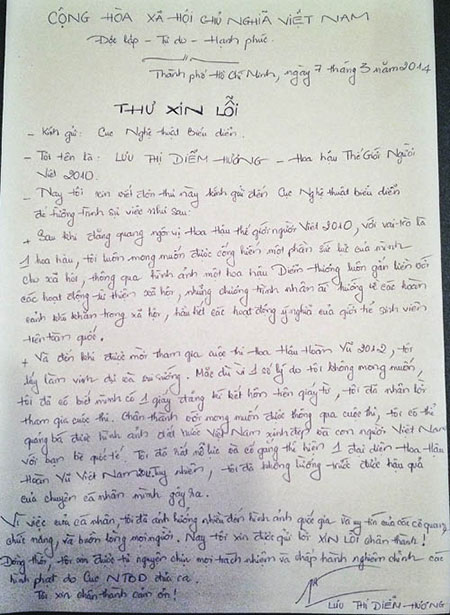 CỘNG HÒA XÃ HỘI CHỦ NGHĨA VIỆT NAM
Độc lập - Tự do - Hạnh phúc
Thành phố Hồ Chí Minh, ngày 7 tháng 3 năm 2014
THƯ XIN LỖI
- Kính gửi: Cục Nghệ thuật Biểu diễn.
- Tôi tên là: LƯU THỊ DIỄM HƯƠNG - Hoa hậu Thế Giới Người
Việt 2010.
- Nay tôi xin viết đơn thư này kính gửi đến Cục Nghệ thuật biểu diễn
để tường trình sự việc như sau:
+ Sau khi đăng quang ngôi vị Hoa Hậu thế giới người Việt 2010, với vai trò là
1 hoa hậu, tôi luôn mong muốn được cống hiến một phần sức lực của mình
cho xã hội, thông qua hình ảnh một hoa hậu Diễm Hương luôn gắn liền với
các hoạt động từ thiện xã hội, những chương trình nhân ái hướng về các hoàn
cảnh khó khăn trong xã hội, hầu hết các hoạt động ý nghĩa của giới trẻ sinh viên
trên toàn quốc.
+ Và đến khi được mời tham gia cuộc thi Hoa Hậu Hoàn Vũ 2012, tôi
lấy làm vinh dự và vui sướng. Mặc dù vì 1 số lý do tôi không mong muốn,
tôi đã có biết mình có 1 giấy đăng ký kết hôn trên giấy tờ, tôi đã nhận lời
tham gia cuộc thi. Chân thành với mong muốn được thông qua cuộc thi, tôi có thể
quảng bá được hình ảnh đất nước Việt Nam xinh đẹp và con người Việt Nam
với bạn bè quốc tế. Tôi đã hết nỗ lực và cố gắng thể hiện 1 đại diện Hoa Hậu
Hoàn Vũ Việt Nam 2012. Tuy nhiên, tôi đã không lường trước được hậu quả
của chuyện cá nhân mình gây ra.
Vì việc của cá nhân, tôi đã ảnh hưởng nhiều đến hình ảnh quốc gia và uy tín của các cơ quan
chức năng, và buồn lòng mọi người. Nay tôi xin được gửi lời XIN LỖI chân thành!
Đồng thời, tôi xin được tự nguyện chịu mọi trách nhiệm và chấp hành nghiêm chỉnh các
hình phạt do Cục NTBD đưa ra.
Tôi xin chân thành cảm ơn!
LƯU THỊ DIỄM HƯƠNG